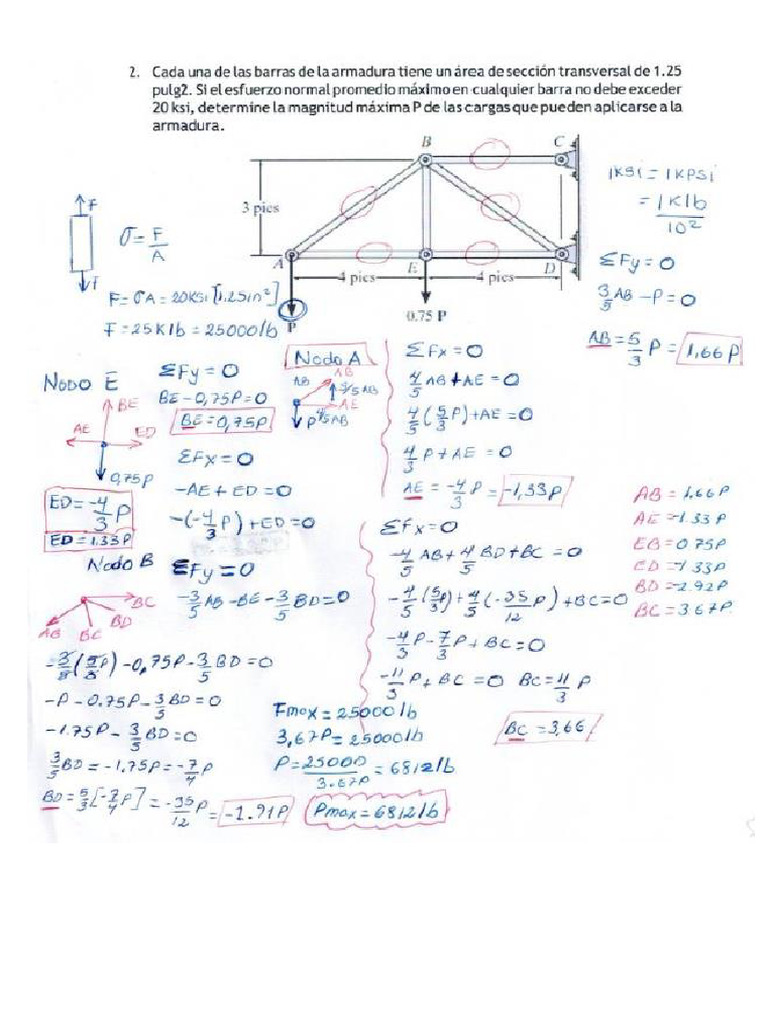 2. Cada una de las barras de la armadura tiene un área de sección transversal de 1.25
pulg2. Si el esfuerzo normal promedio máximo en cualquier barra no debe exceder
20 ksi, determine la magnitud máxima P de las cargas que pueden aplicarse a la
armadura.
B
C
3 pies
A
E
D
4 pies
4 pies
P
0.75 P
F
σ = F/A
F
F = σA = 20KSI [1.25in²]
F = 25Klb = 25000lb
1KSi = 1KPSi
= 1Klb/10²
ΣFy = 0
3/5 AB - P = 0
AB = 5/3 P = 1,66P
NODO E
BE
AE
ED
0,75P
ΣFy = 0
BE - 0,75P = 0
BE = 0,75P
ΣFx = 0
-AE + ED = 0
-(-4/3 P) + ED = 0
ED = -4/3 P
ED = 1.33P
Nodo A
AB
AB
3/5 AB
AE
P
4/5 AB
ΣFx = 0
4/5 AB + AE = 0
4/5 (5/3 P) + AE = 0
4/3 P + AE = 0
AE = -4/3 P = -1,33P
Nodo B
AB
BC
BD
BC
ΣFy = 0
-3/5 AB - BE - 3/5 BD = 0
-3/5 (5/3 P) - 0,75P - 3/5 BD = 0
-P - 0.75P - 3/5 BD = 0
-1.75P - 3/5 BD = 0
3/5 BD = -1,75P = -7/4 P
BD = 5/3 [-7/4 P] = -35/12 P = -1.91P
ΣFx = 0
-4/5 AB + 4/5 BD + BC = 0
-4/5 (5/3 P) + 4/5 (-35/12 P) + BC = 0
-4/3 P - 7/3 P + BC = 0
-11/3 P + BC = 0 BC = 11/3 P
BC = 3,66
Fmax = 25000 lb
3,67P = 25000lb
P = 25000/3.67P = 6812lb
Pmax = 6812lb
AB = 1.66P
AE = -1.33P
EB = 0.75P
ED = -1.33P
BD = -2.92P
BC = 3.67P